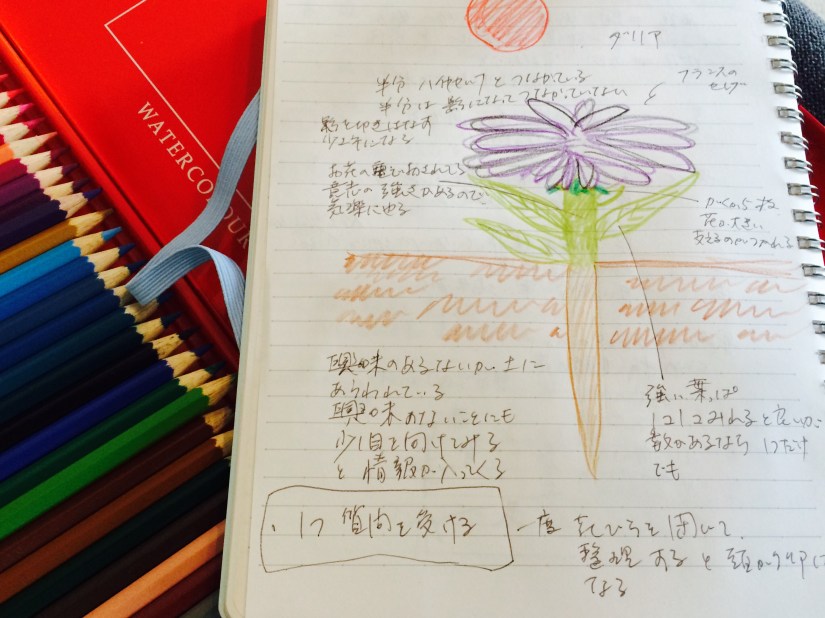 WATERCOLOUR
ダリア
半分 ハイヤセルフ と つながっている
半分は 影になって つながっていない
フランスの
影を切りはなす
少工年になる
お花の
意志の 強さがあるので
花が大きい
支えるのがつかれる
興味のあるないが 土に
あらわれている
興味のないことにも
少し目を向けてみる
と 情報が入ってくる
強い葉っぱ
1コ1コみれると良いが
数があるなら 1つだけ
でも
・1つ 質問を受ける
一度 花びらを 閉いて、
整理 すると 頭がクリアに
なる